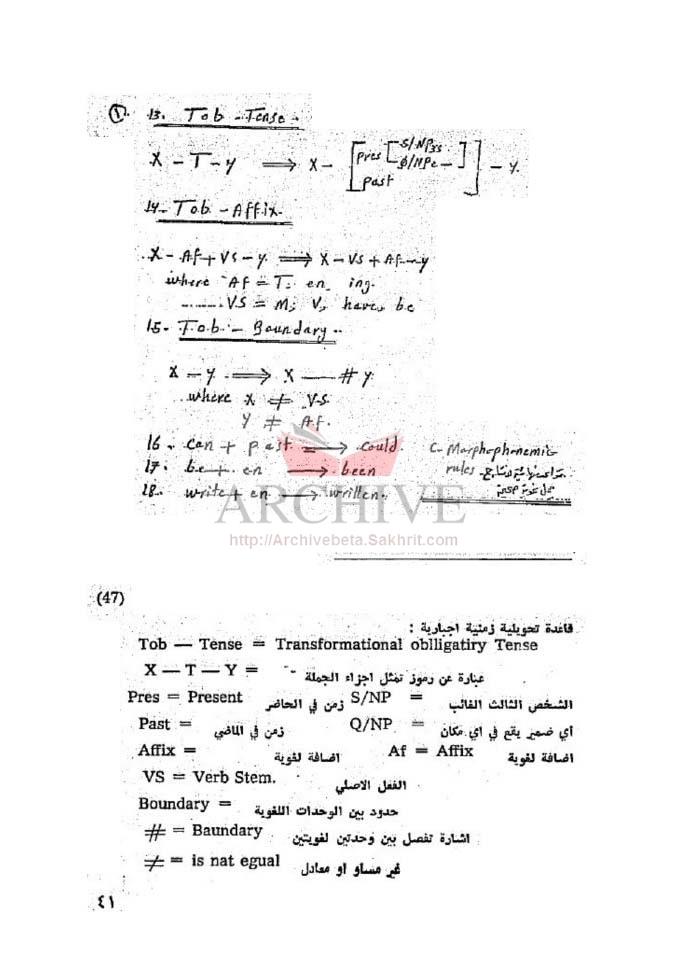 ١٠ 13. Tob - Tense -
X - T - y ⟹ X - [pres [s/NP3s ø/NPe —] past] - y.
14 - Tob - Affix.
X - Af + VS - y ⟹ X - VS + Af - y
where Af = T. en, ing.
VS = M, V, have, be
15 - Tob - Boundary..
X - y ⟹ X — # y
where X ≠ VS
Y ≠ Af.
16. can + past ⟶ could.
C - Morphophonemic
17. be + en ⟶ been
rules
18. write + en ⟶ written.
ARCHIVE
http://Archivebeta.Sakhrit.com
(47)
قاعدة تحويلية زمنية اجبارية :
Tob — Tense = Transformational obiligatiry Tense
X — T — Y = عبارة عن رموز تمثل اجزاء الجملة
Pres = Present زمن في الحاضر S/NP = الشخص الثالث الغائب
Past = زمن في الماضي Q/NP = أي ضمير يقع في اي مكان
Affix = اضافة لغوية Af = Affix اضافة لغوية
VS = Verb Stem. الفعل الاصلي
Boundary = حدود بين الوحدات اللغوية
# = Baundary اشارة تفصل بين وحدتين لغويتين
≠ = is nat egual غير مساو او معادل
٤١